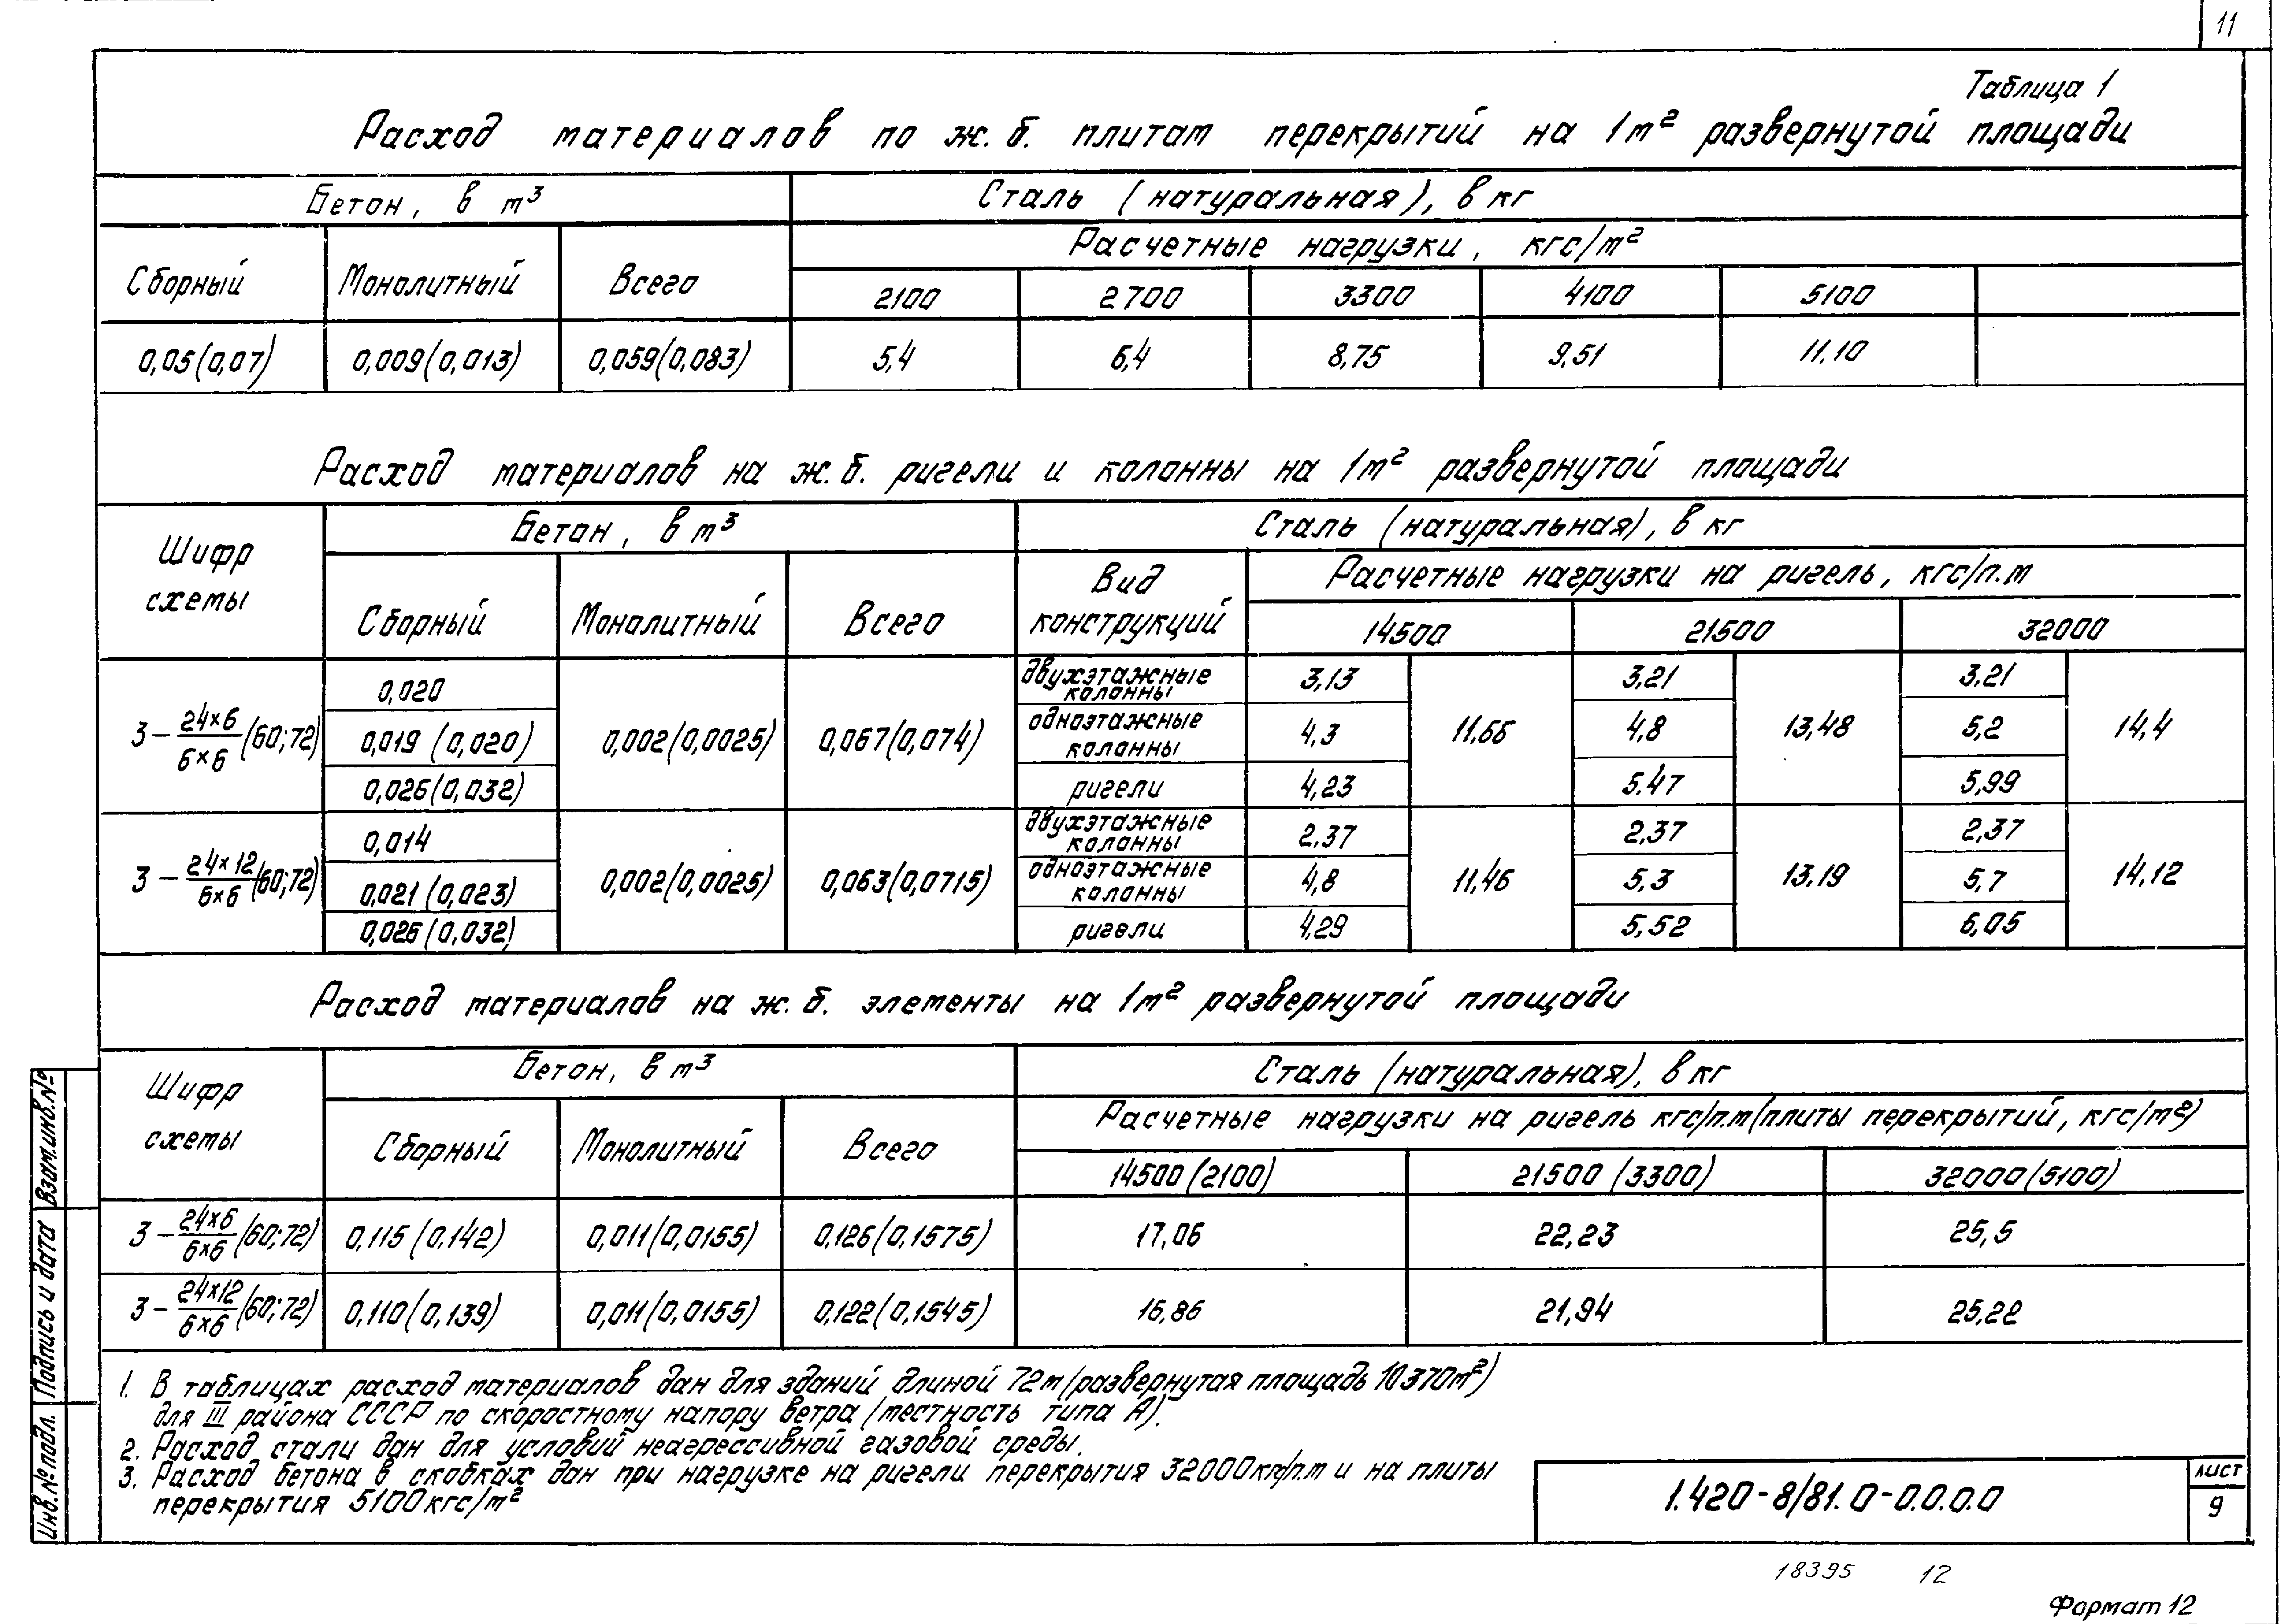 11
Таблица 1
Расход материалов по ж.б. плитам перекрытий на 1м² развернутой площади
Бетон, в м³ Сталь (натуральная), в кг
Расчетные нагрузки, кгс/м²
Сборный Монолитный Всего 2100 2700 3300 4100 5100
0,05(0,07) 0,009(0,013) 0,059(0,083) 5,4 6,4 8,75 9,51 11,10
Расход материалов на ж.б. ригели и колонны на 1м² развернутой площади
Шифр схемы Бетон, в м³ Сталь (натуральная), в кг
Сборный Монолитный Всего Вид конструкций Расчетные нагрузки на ригель, кгс/п.м
14500 21500 32000
3 – 24×6/6×6 (60;72) 0,002(0,0025) 0,067(0,074) 11,66 13,48 14,4
0,020 двухэтажные колонны 3,13 3,21 3,21
0,019 (0,020) одноэтажные колонны 4,3 4,8 5,2
0,026(0,032) ригели 4,23 5.47 5,99
3 – 24×12/6×6 (60;72) 0,002(0,0025) 0,063(0,0715) 11,46 13,19 14,12
0,014 двухэтажные колонны 2,37 2,37 2,37
0,021 (0,023) одноэтажные колонны 4,8 5,3 5,7
0,026(0,032) ригели 4,29 5,52 6,05
Расход материалов на ж.б. элементы на 1м² развернутой площади
Шифр схемы Бетон, в м³ Сталь (натуральная), в кг
Сборный Монолитный Всего Расчетные нагрузки на ригель кгс/п.м(плиты перекрытий, кгс/м²)
14500(2100) 21500 (3300) 32000(5100)
3 – 24×6/6×6 (60;72) 0,115 (0,142) 0,011(0,0155) 0,126(0,1575) 17,06 22,23 25,5
3 – 24×12/6×6 (60;72) 0,110(0,139) 0,011(0,0155) 0,122(0,1545) 16,86 21,94 25,22
1. В таблицах расход материалов дан для зданий длиной 72м(развернутая площадь 10370м²)
для III района СССР по скоростному напору ветра (местность типа А).
2. Расход стали дан для условий неагрессивной газовой среды.
3. Расход бетона в скобках дан при нагрузке на ригели перекрытия 32000кгс/п.м и на плиты
перекрытия 5100кгс/м²
Инв.№подл. Подпись и дата Взам.инв.№
1.420-8/81.0-0.0.0.0
лист
9
18395 12
Формат 12